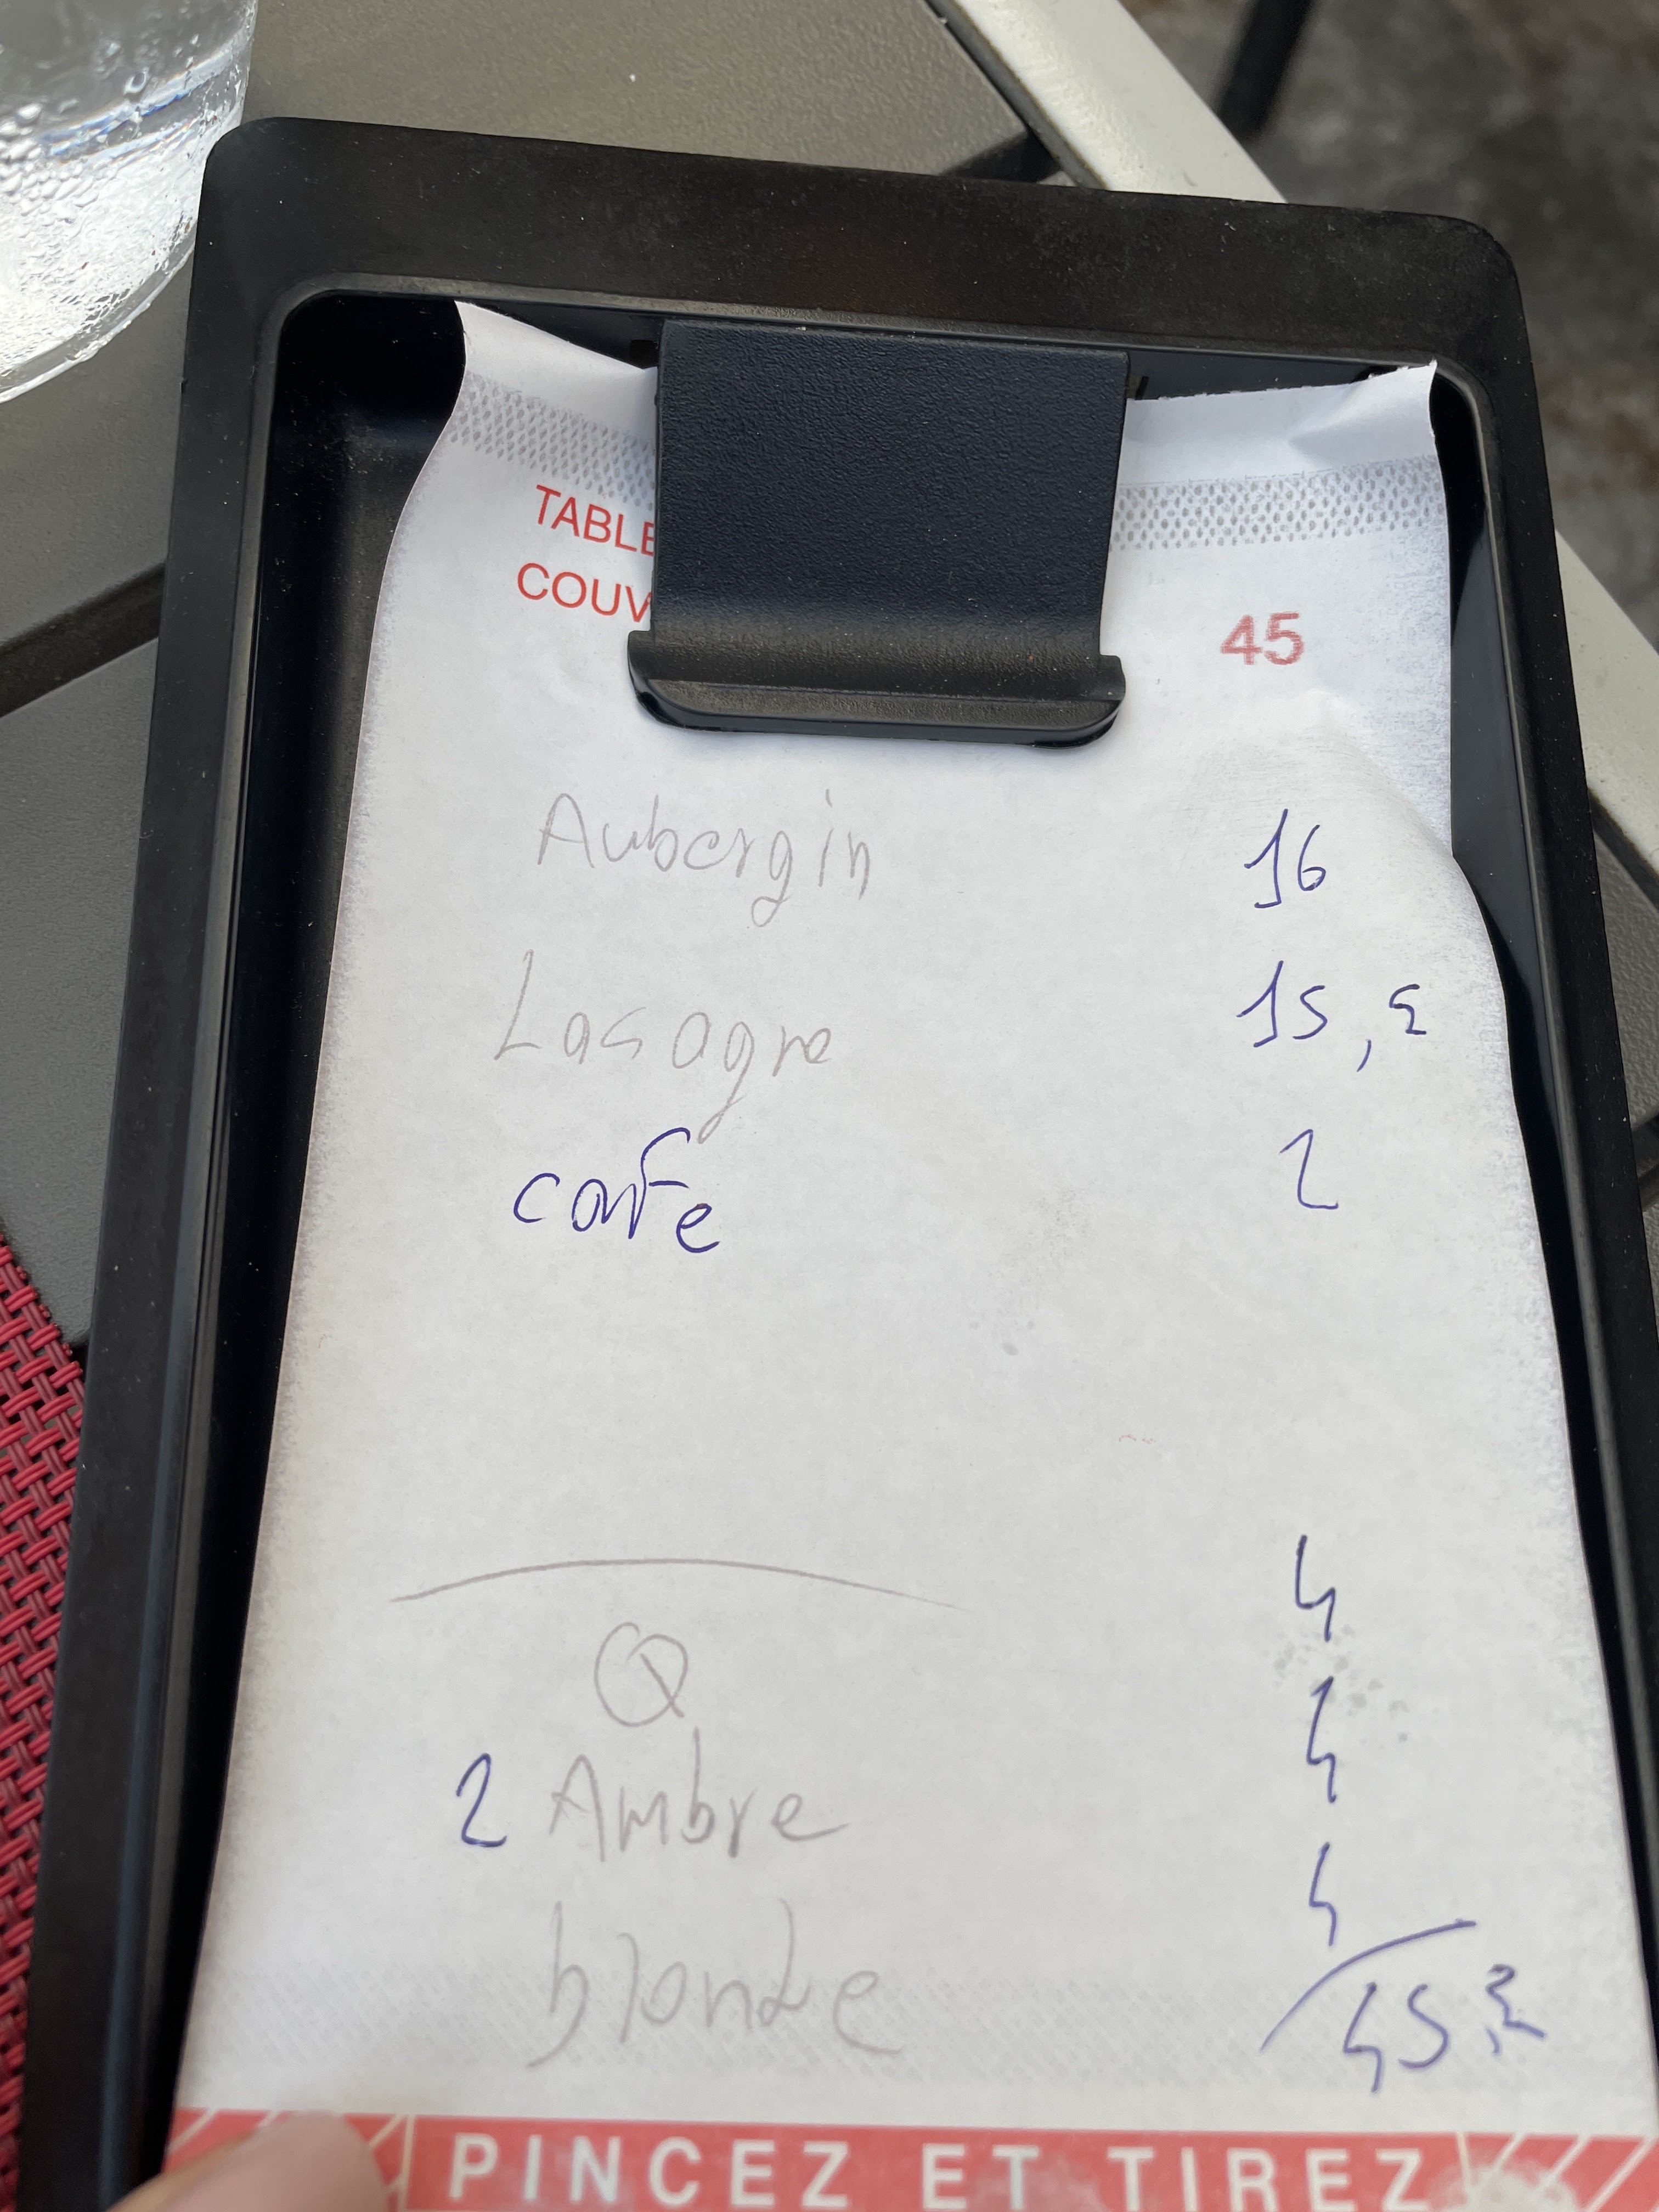 TABLE
COUV
45
Aubergin 16
Lasagne 15,2
cafe 2
4
Q 4
2 Ambre 4
blonde 45,2
PINCEZ ET TIREZ